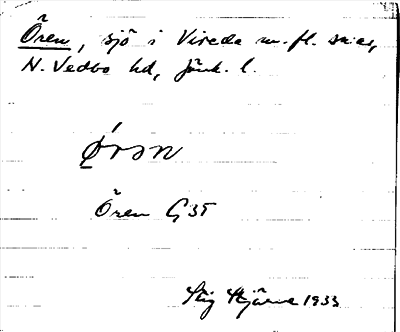 Ören, sjö i Vireda m.fl. snar,
N. Vedbo hd, Jönk. l.
Örən
Ören G35
Stig Stjärne 1933